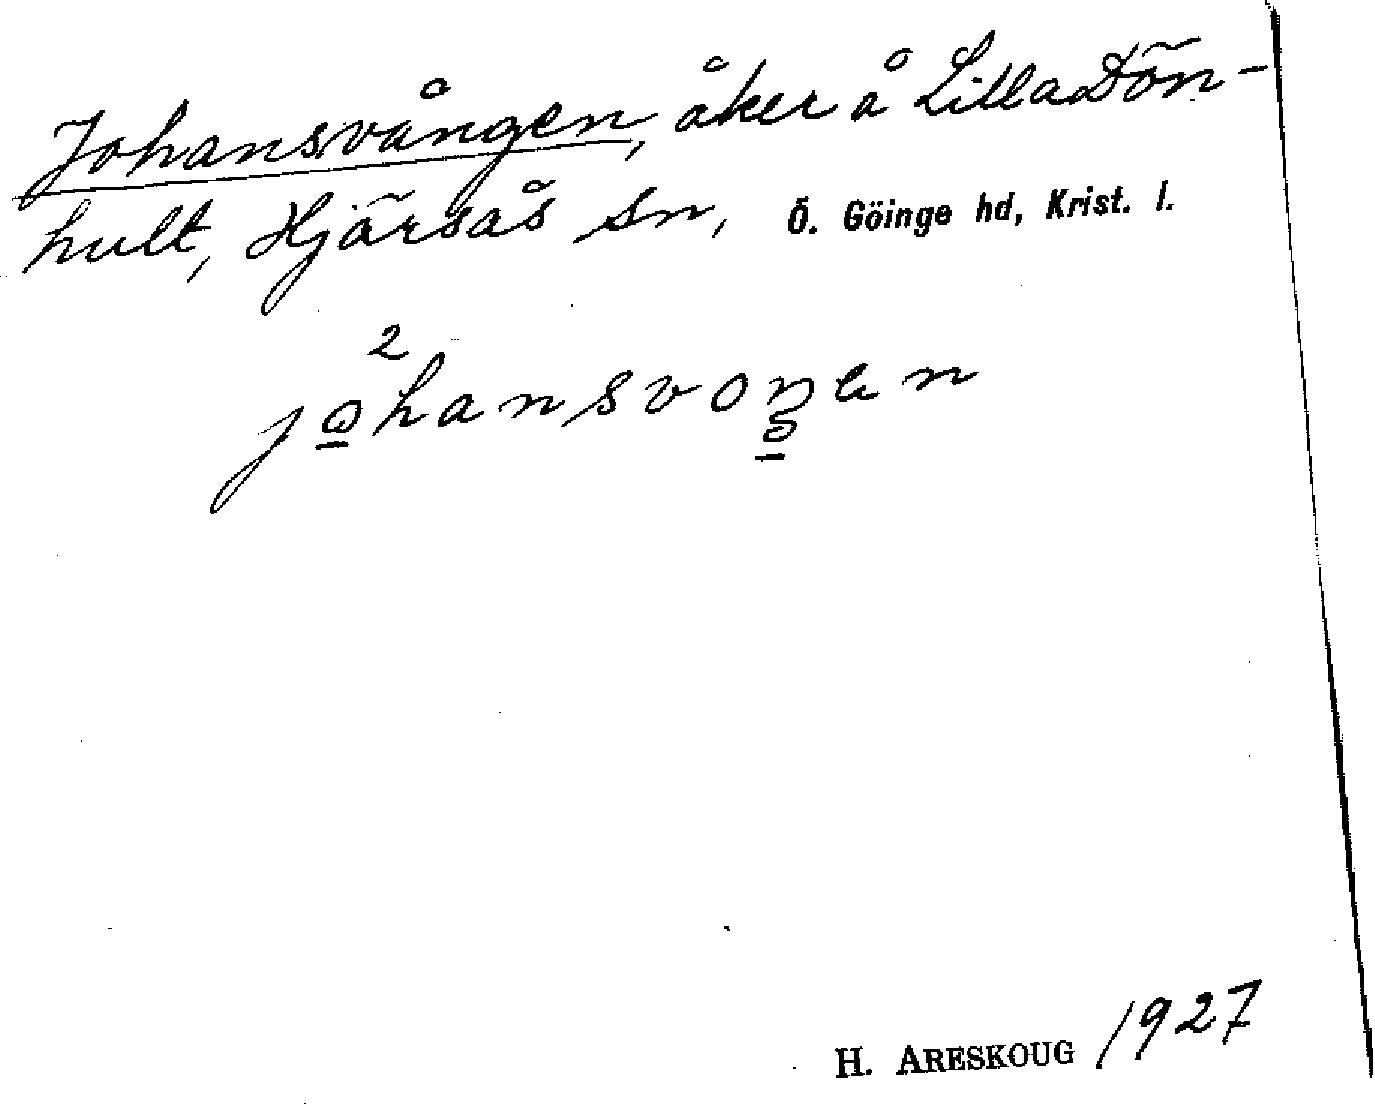 Johansvången, åker å Lilla Dön-
hult, Hjärsås sn, Ö. Göinge hd, Krist. l.
2
johansvoŋen
H. ARESKOUG 1927